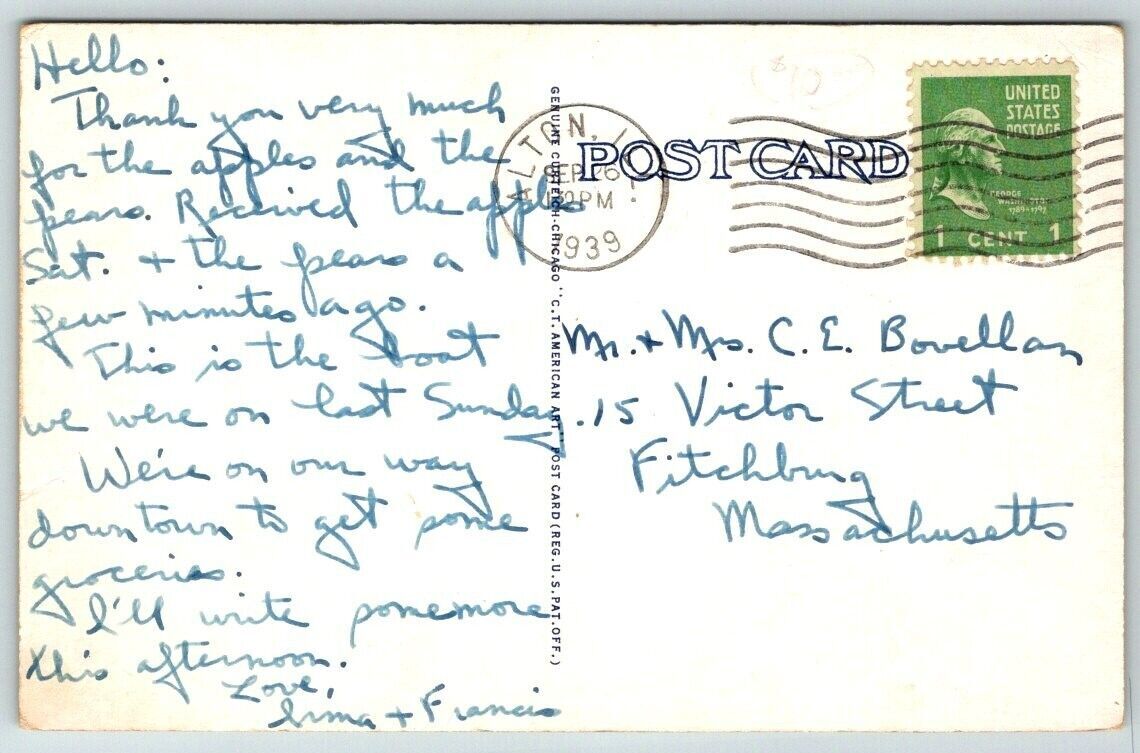 Hello:
Thank you very much
for the apples and the
pears. Received the apples
Sat. + the pears a
few minutes ago.
This is the boat
we were on last Sunday.
We're on our way
downtown to get some
groceries.
I'll write somemore
this afternoon.
Love,
Irma + Francis
GENUINE CURTEICH-CHICAGO "C.T. AMERICAN ART" POST CARD (REG. U.S. PAT. OFF.)
ALTON, ILL.
SEP
12 PM
1939
POST CARD
UNITED
STATES
POSTAGE
GEORGE
WASHINGTON
1789-1797
1 CENT 1
Mr. + Mrs. C. E. Bovellan
15 Victor Street
Fitchburg
Massachusetts